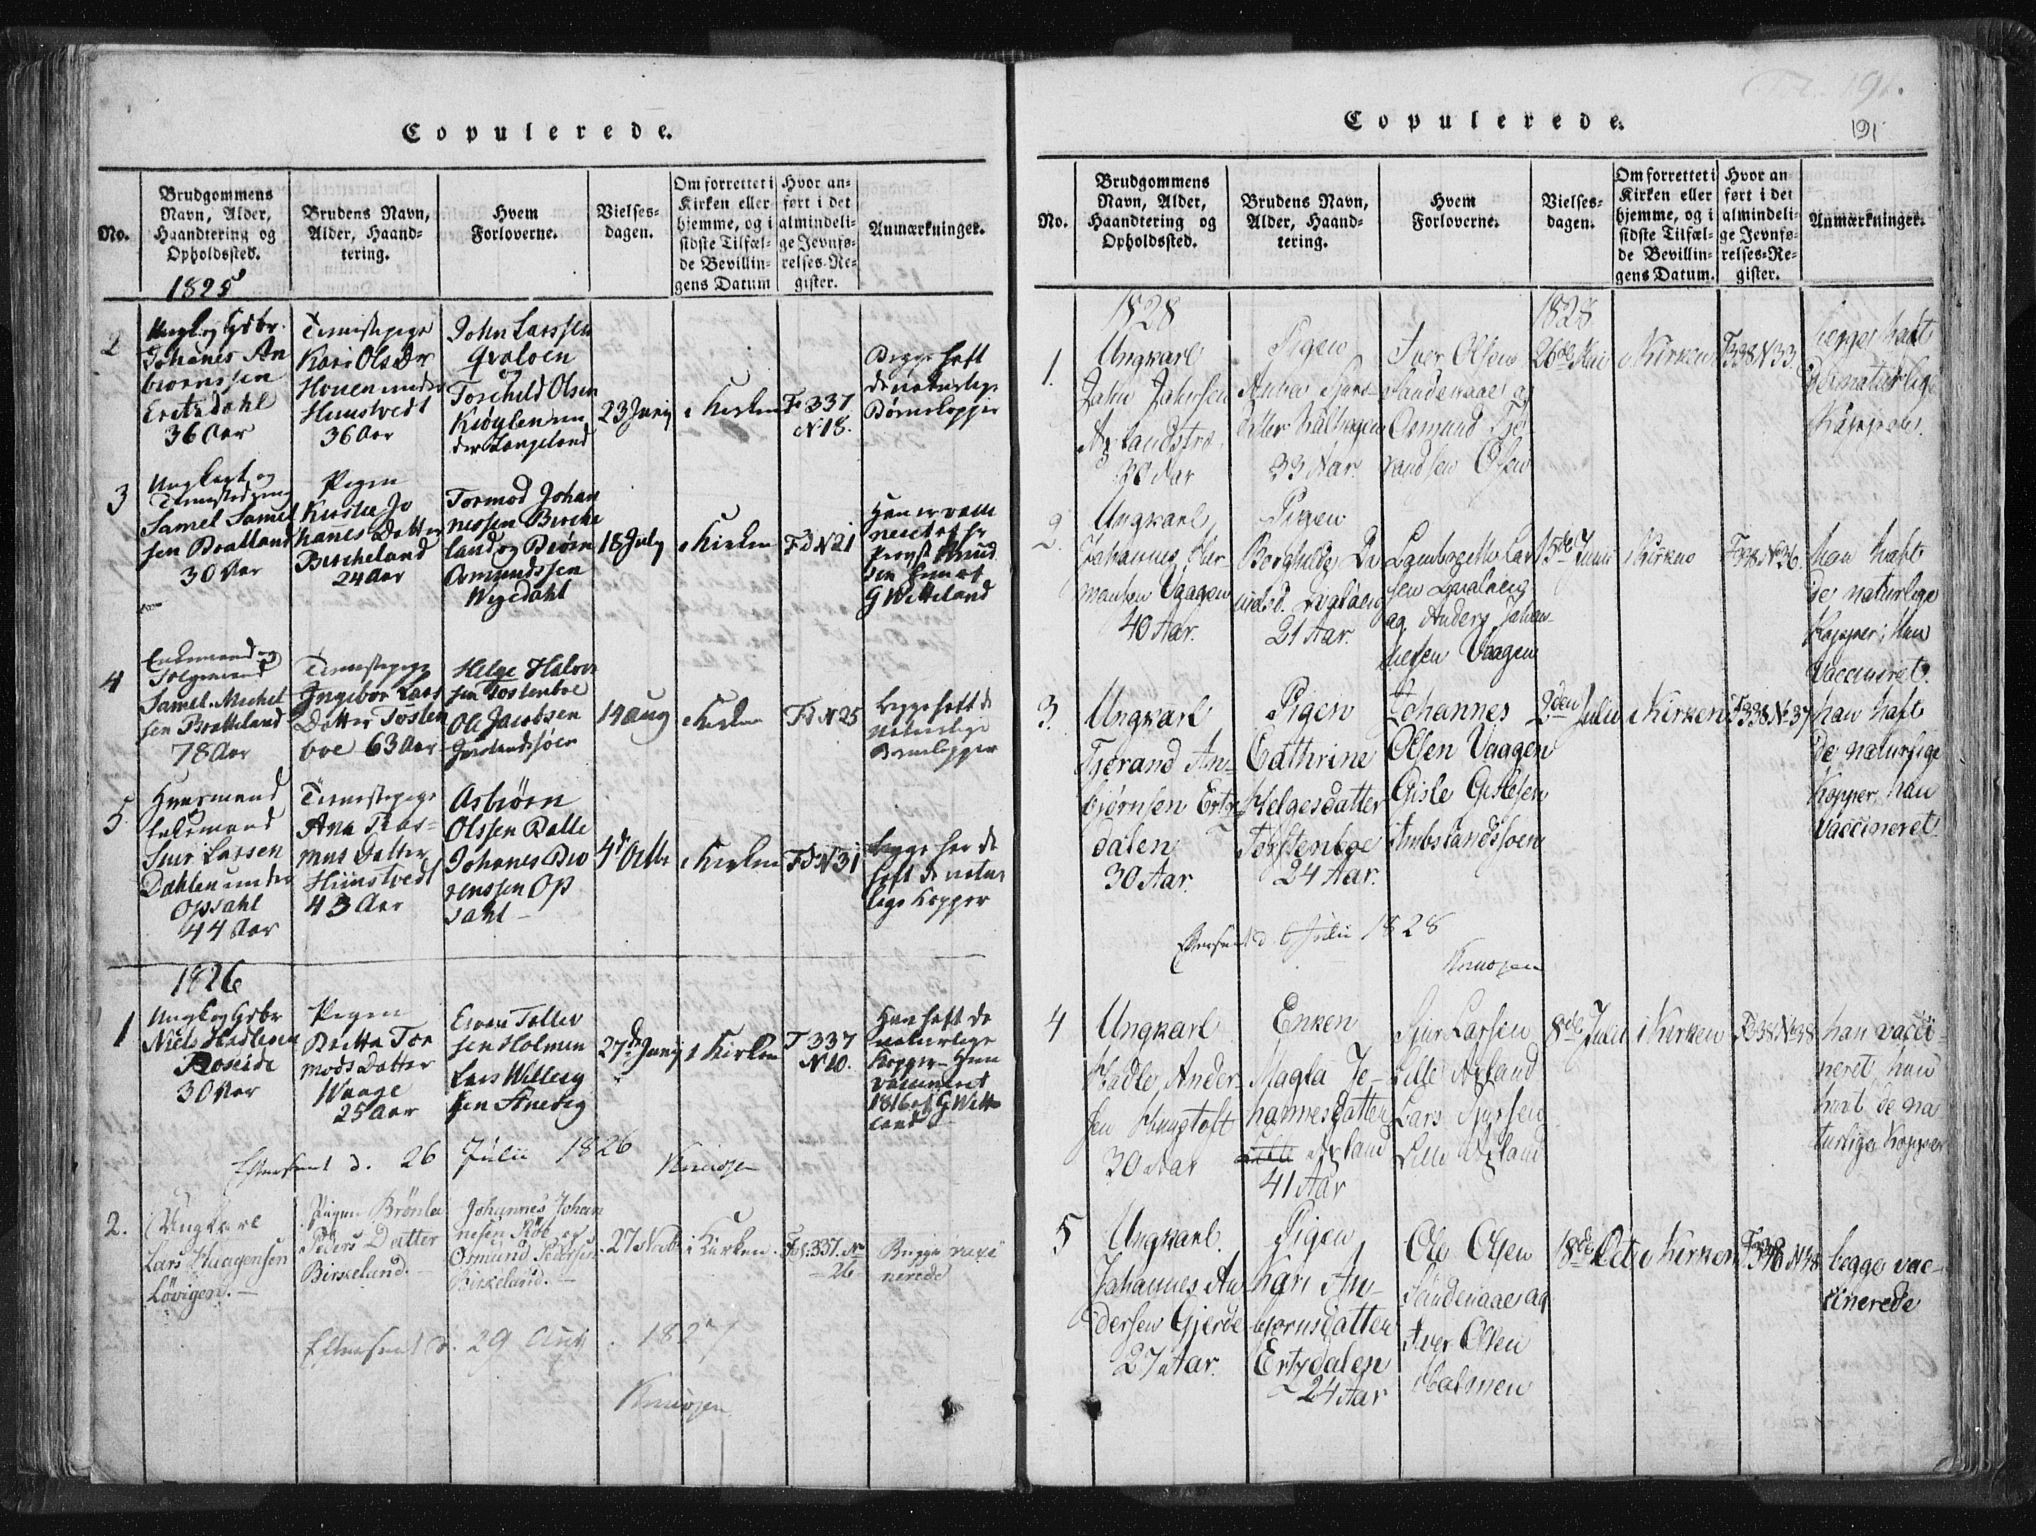 Copulerede.
No.
Brudgommens
Navn, Alder,
Haandtering og
Opholdssted.
Brudens Navn,
Alder, Haand-
tering.
Hvem
Forloverne.
Vielses-
dagen.
Om forrettet i
Kirken eller
hjemme, og i
sidste Tilfæl-
de Bevillin-
gens Datum
Hvor an-
ført i det
almindeli-
ge Jevnfø-
relses-Re-
gister.
Anmærkninger.
1825
2
Johanes An
biørnssen
Ertzdahl
36 Aar
Tienistepige
Kari Ols Dr
Houen under
Himstvedt
36 Aar
John Larssen
Qvaloen
og
Torchild Olsen
Kiøylen un
der Langeland
23 Junij
i Kirken
Fo 337
N 18.
Begge haft
de naturlige
Børnekopper
3
Ungkarl og
Samel Samel
sen Bratland
30 Aar
Pigen
Kirstie Jo
hanes Datter
Bircheland
24 Aar
Tormod Johan
nessen Birche
land og Biørn
Osmundssen
Wigedahl
18 July
i Kirken
Fd N 21
Han er vacci
neret af Hr
Provst Knud
sen hun af
G Witteland
4
Enkemand og
Samel Michel
sen Bratteland
78 Aar
Tienistepige
Ingebor Lars
Datter Tosten
boe 63 Aar
Helge Halvor
sen Tostenboe
Ole Jacobsen
14 Aug
i Kirken
Fd N 25
begge haft de
Naturlige
Børnekopper
5
Huusmand
Enkemand
Siur Larsen
Dahlen under
Opsahl
44 Aar
Tienistepige
Ana Ras-
mus Datter
Hiimstvedt
43 Aar
Asbiørn
Olssen Dalle
Johanes Diu
renssen Op
sahl
4 Octbr
i Kirken
Fd N 31
begge har de
haft de natur
lige kopper
1826
1
Niels Hadlesen
Roseide
30 Aar
Pigen
Britta Tor
mods Datter
Waage
25 Aar
Sven Tollev
sen Holmen
Lars Willesg
sen Anebeg
27de Junij
i Kirken
F 337
N 20.
Han haft de
naturlige
Kopper. Hun
vaccineret
1816 af G Witte
land
Eftersent d. 26 Julii 1826
Knudsen
2.
Ungkarl
Lars Haagensen
Løvigen.
Pigen Brønla
Peders Datter
Birkeland.
Johannes Johan
nesen Røe og
Osmund Pedersen
Birkeland.
27 Novb
i Kirken.
Fol. 337. No
26
Begge vaxi
nerede
Eftersent d. 29 Aug. 1827
Knudsen
Copulerede.
191
No.
Brudgommens
Navn, Alder,
Haandtering og
Opholdssted.
Brudens Navn,
Alder, Haand-
tering.
Hvem
Forloverne.
Vielses-
dagen.
Om forrettet i
Kirken eller
hjemme, og i
sidste Tilfæl-
de Bevillin-
gens Datum.
Hvor an
ført i det
almindeli-
ge Jevnfø-
relses-Re-
gister.
Anmærkninger.
1828
1828
1.
Ungkarl
John Johnsen
38 Aar
Pigen
33 Aar
Iver Olsen
Sandenaae og
Osmund Tje
randsen Olsen
26de Mai
i Kirken
F338 N 33.
begge haft
de naturlige
Kopper
2.
Ungkarl
Johannes Her
mansen Vaagen
40 Aar.
Pigen
Borghilde Da
nielsd. Qvaloen
21 Aar.
Lambrecth Lar
sen Qvaloen
og Anders Johan
nesen Vaagen
15de Junii
i Kirken
F338 No 36.
han haft
de naturlige
Kopper; hun
Vaccineret.
3.
Ungkarl
Tjerand An-
bjørnsen Ertz
dalen
30 Aar.
Pigen
Cathrine
Helgesdatter
Tostenboe
24 Aar.
Johannes
Olsen Vaagen
Gisle Gislesen
Ambslandssoen
2den Julii
i Kirken
F338 No 37
han haft
de naturlige
Kopper, hun
Vaccineret
Eftersent d. 6 Julii 1828
Knudsen
4
Ungkarl
Hadle Ander-
sen Hungtoft
30 Aar
Enken
Magla Jo-
hannesdatter
Lille Axland
41 Aar
Sjur Larsen
Lille Axland
Lars Sjursen
Lille Axland
8de Julii
i Kirken
F338 No 38
han vacci-
neret hun
havt de na
turlige Kopper
5
Ungkarl
Johannes An
dersen Gjerde
27 Aar.
Pigen
Kari An-
bjørnsdatter
Ertzdalen
24 Aar
Ole Olsen
Sandenaae og
Iver Olsen
Holmen
18de Oct
i Kirken
N 48
begge vac-
cinerede